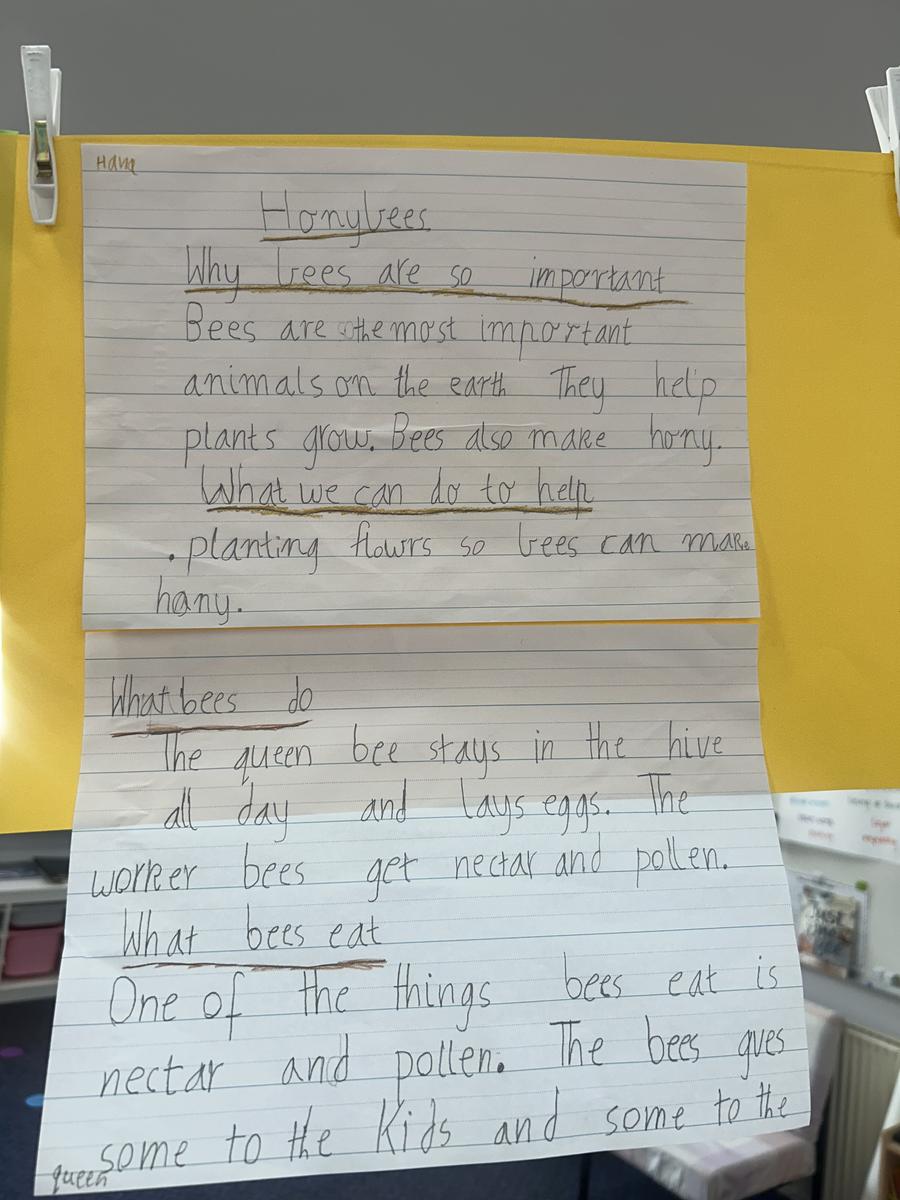 Honybees
Why bees are so important
Bees are the most important
animals on the earth They help
plants grow. Bees also make hony.
What we can do to help
. planting flowrs so bees can make
hany.
What bees do
The queen bee stays in the hive
all day and lays eggs. The
worker bees get nectar and pollen.
What bees eat
One of the things bees eat is
nectar and pollen. The bees gves
some to the Kids and some to the
queen